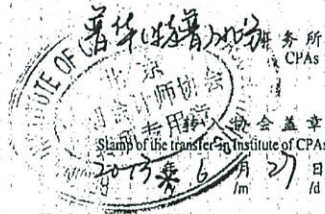 普华(特普)
事务所
CPAs
INSTITUTE OF CPAs
北京
会计师协会
专用章
转入协会盖章
Stamp of the transfer-in Institute of CPAs
2013年6月27日
/m /d